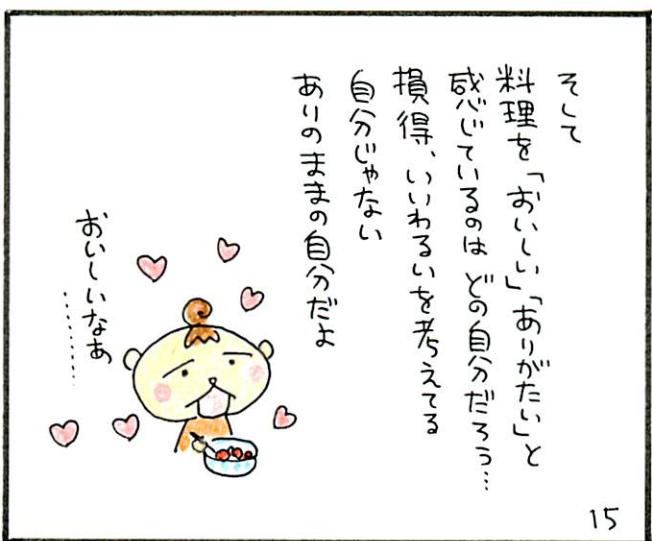 そして
料理を「おいしい」「ありがたい」と
感じているのは どの自分だろう…
損得、いいわるいを考えてる
自分じゃない
ありのままの自分だよ
おいしいなあ
………
15